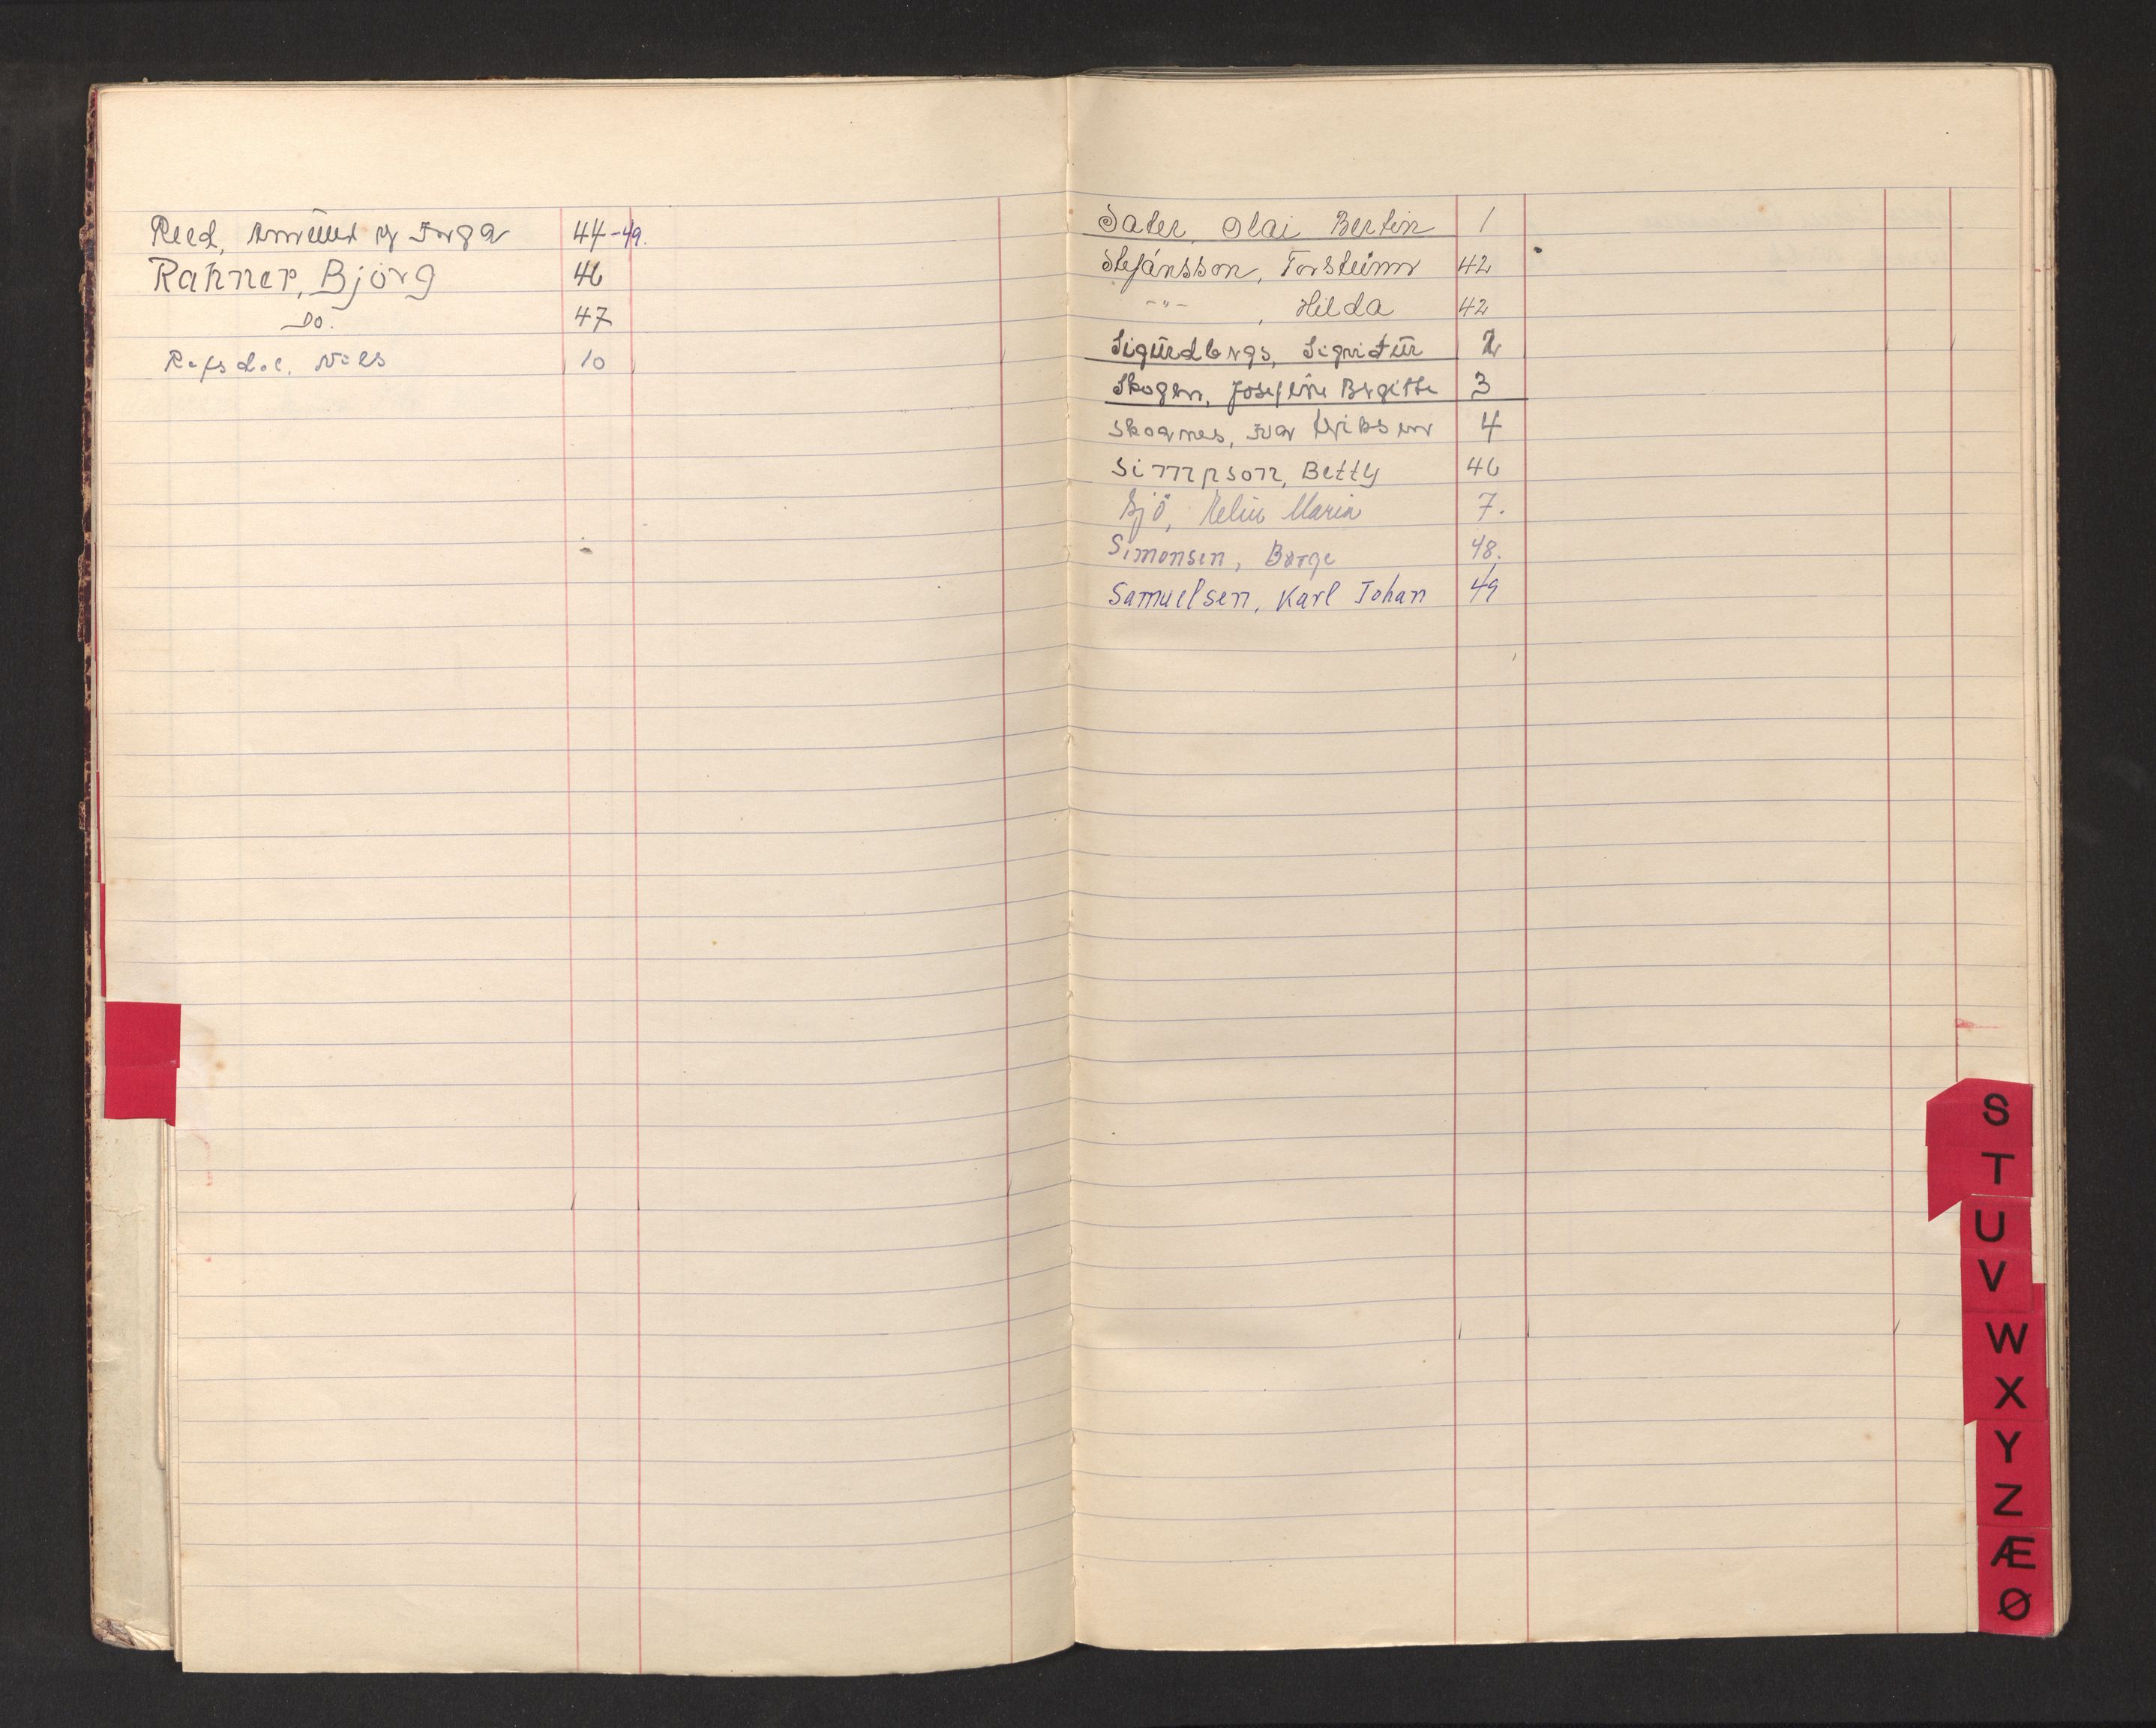 Reed, og Inga 44-49.
Rahner, Bjørg 46
Do. 47
Refsdal, Nils 10
Sater, Olai Bertin 1
Stefánsson, Torsteinn 42
-"- , Hilda 42
Sigurdbergs, Sigridur 2
Skogen, Josefine Birgitte 3
Skognes, Ivar Eriksen 4
Simpson, Betty 46
Sjö, Maria 7.
Simonsen, Børge 48.
Samuelsen, Karl Johan 49
S
T
U
V
W
X
Y
Z
Æ
Ø